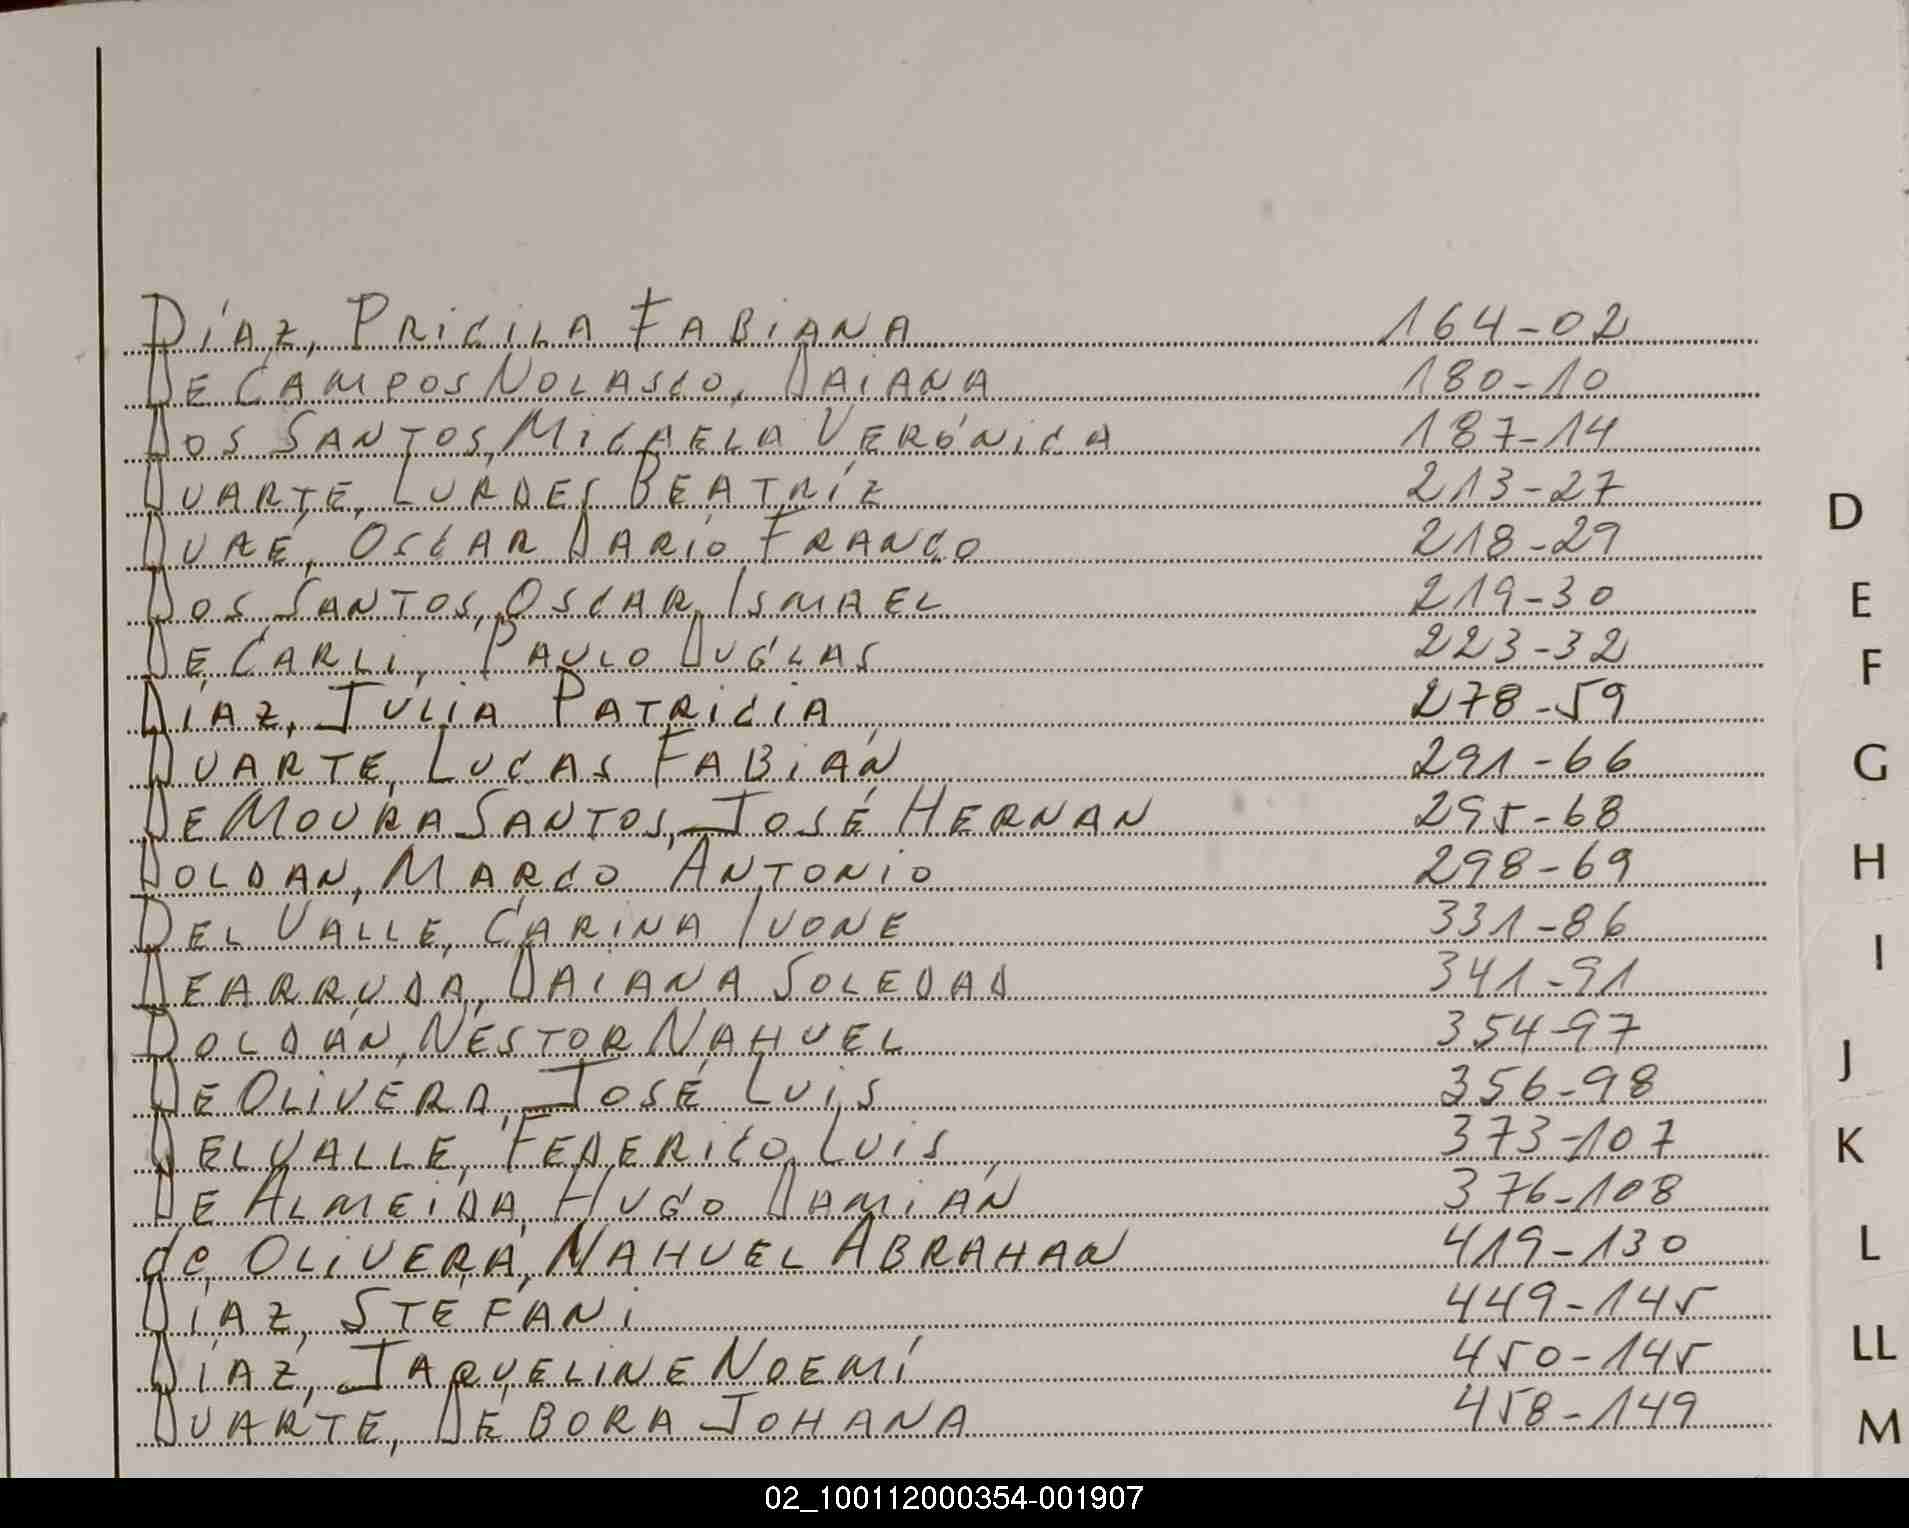 Díaz, Pricila Fabiana 164-02
De Campos Nolasco, Daiana 180-10
Dos Santos, Micaela Verónica 187-14
Duarte, Lurdes Beatríz 213-27
Duré, Oscar Darío Franco 218-29
Dos Santos, Oscar Ismael 219-30
De Carli, Paulo Duglas 223-32
Díaz, Julia Patricia 278-59
Duarte, Lucas Fabián 291-66
De Moura Santos, José Hernan 295-68
Doldan, Marco Antonio 298-69
Del Valle, Carina Ivone 331-86
Dearruda, Daiana Soledad 341-91
Doldán, Néstor Nahuel 354-97
De Olivera, José Luis 356-98
Del Valle, Federico Luis 373-107
De Almeida, Hugo Damián 376-108
de Olivera, Nahuel Abrahan 419-130
Díaz, Stefani 449-145
Díaz, Jaqueline Noemí 450-145
Duarte, Débora Johana 458-149
D
E
F
G
H
I
J
K
L
LL
M
02_100112000354-001907